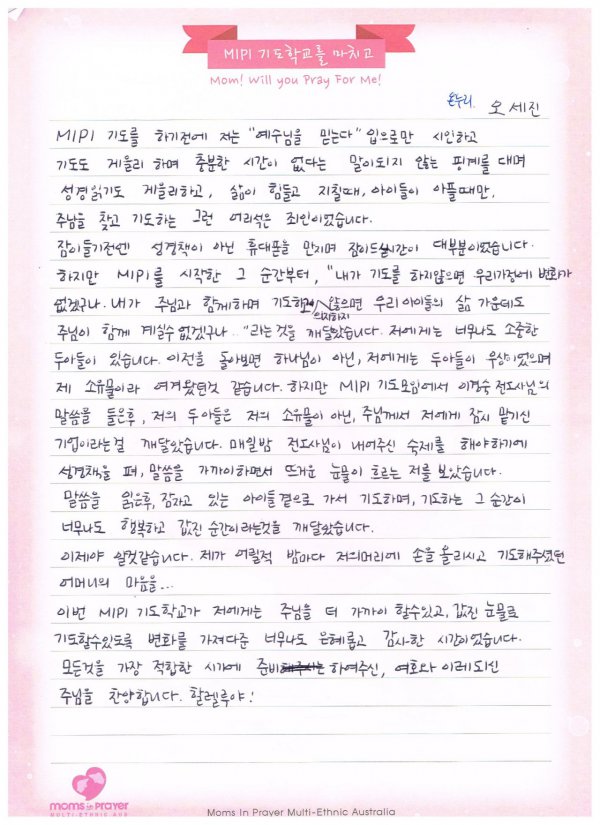 MIPI 기도학교를 마치고
Mom! Will you Pray For Me!
온누리 오세진
MIPI 기도를 하기전에 저는 "예수님을 믿는다" 입으로만 시인하고
기도도 게을리 하며 충분한 시간이 없다는 말이되지 않는 핑계를 대며
성경읽기도 게을리하고, 삶이 힘들고 지칠때, 아이들이 아플때만,
주님을 찾고 기도하는 그런 어리석은 죄인이었습니다.
잠이들기전엔 성경책이 아닌 휴대폰을 만지며 잠이드실시간이 대부분이었습니다.
하지만 MIPI를 시작한 그 순간부터, "내가 기도를 하지않으면 우리가정에 변화가
없겠구나. 내가 주님과 함께하며 기도하고 의지하지 않으면 우리아이들의 삶 가운데도
주님이 함께 계실수 없겠구나.." 라는것을 깨달았습니다. 저에게는 너무나도 소중한
두아들이 있습니다. 이전을 돌아보면 하나님이 아닌, 저에게는 두아들이 우상이었으며
제 소유물이라 여겨왔던것 같습니다. 하지만 MIPI 기도모임에서 이경숙 전도사님의
말씀을 들은후, 저의 두아들은 저의 소유물이 아닌, 주님께서 저에게 잠시 맡기신
기업이라는걸 깨달았습니다. 매일밤 전도사님이 내어주신 숙제를 해야하기에
성경책을 펴, 말씀을 가까이하면서 뜨거운 눈물이 흐르는 저를 보았습니다.
말씀을 읽은후, 잠자고 있는 아이들곁으로 가서 기도하며, 기도하는 그순간이
너무나도 행복하고 값진 순간이라는것을 깨달았습니다.
이제야 알것같습니다. 제가 어릴적 밤마다 저의머리에 손을 올리시고 기도해주셨던
어머니의 마음을...
이번 MIPI 기도학교가 저에게는 주님을 더 가까이 할수있고, 값진 눈물로
기도할수있도록 변화를 가져다준 너무나도 은혜롭고 감사한 시간이었습니다.
모든것을 가장 적합한 시기에 준비하여주신, 여호와 이레되신
주님을 찬양합니다. 할렐루야!
moms in prayer
MULTI-ETHNIC AUS
Moms In Prayer Multi-Ethnic Australia